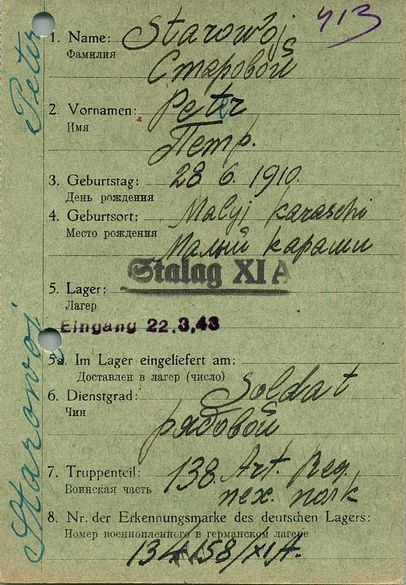 413
1. Name: Starowoj
Фамилия
Старовой
2. Vornamen: Peter
Имя
Петр.
3. Geburtstag: 28 6. 1910.
День рождения
4. Geburtsort: Malyj karaschi
Место рождения
Малый караши
Stalag XI A
5. Lager:
Лагерь
Eingang 22.3.43
5a. Im Lager eingeliefert am:
Доставлен в лагерь (число)
6. Dienstgrad: Soldat
Чин
рядовой
7. Truppenteil: 138. Art. Reg.
Воинская часть
8. Nr. der Erkennungsmarke des deutschen Lagers:
Номер военнопленного в германском лагере
134158/XIA.
Starowoj Peter